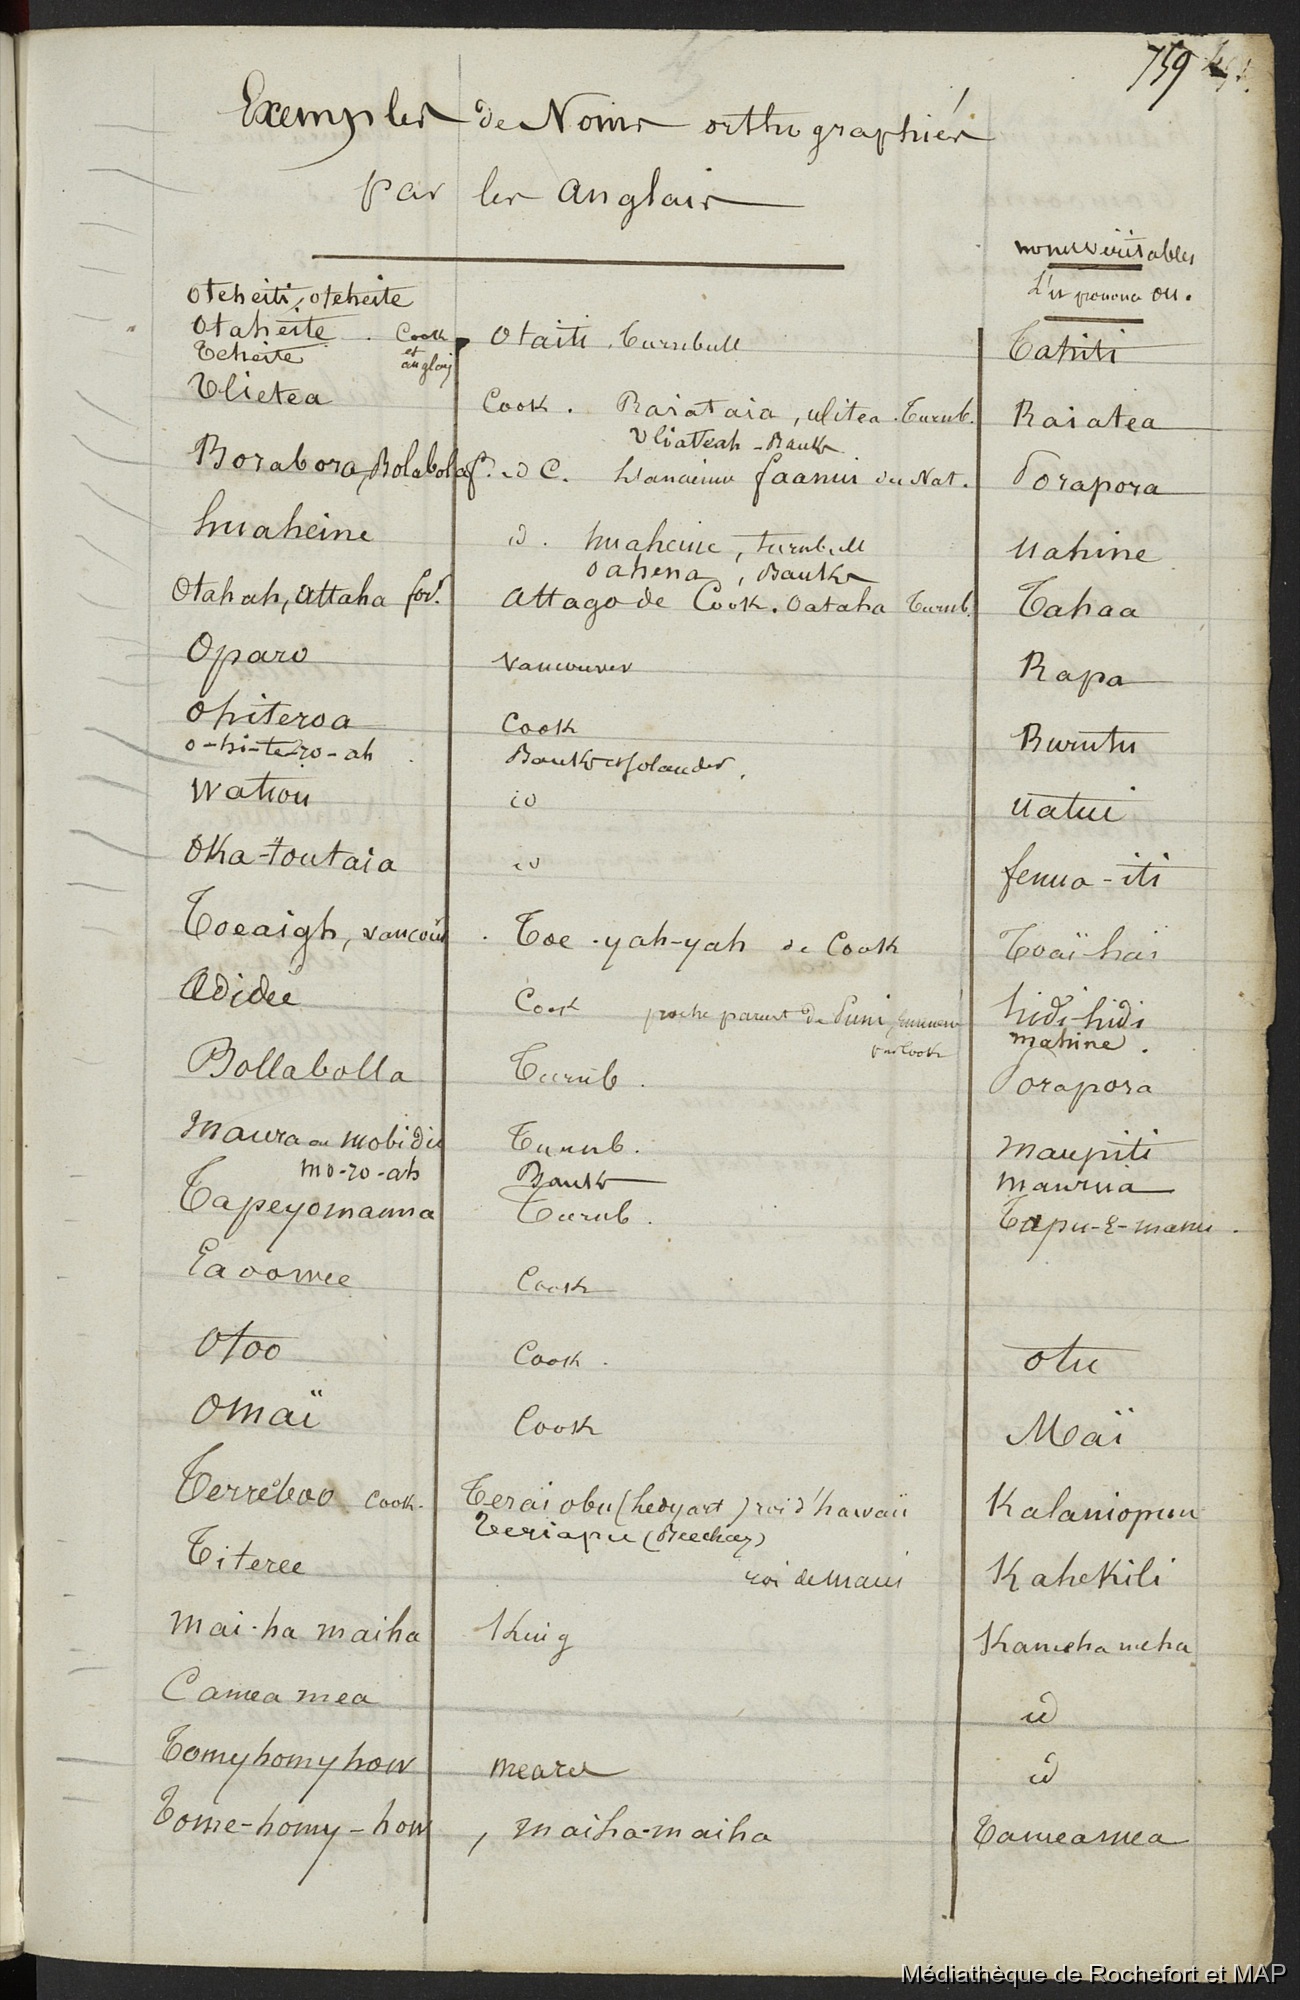 759
Exemples de Noms orthographiés
par les anglais
noms véritables
L'u prononcé ou.
oteheiti, oteheite
Otaheite Cook Otaiti . Turnbull Tahiti
Teheite et anglais
Ulietea Cook . Raiataia, ulitea . Turnb. Raiatea
Uliateah - Banks
Borabora, Bolabola id C. L'ancienne faanui du Nat. Porapora
huaheine id . huaheine, turnbull uahine
oahena, Banks
Otahah, Attaha for. Attago de Cook. Oataha Turnb. Tahaa
Oparo Vancouver Rapa
Ohiteroa Cook Rurutu
o-hi-te-ro-ah Banks et Solander.
Watiou id uatiu
Oka-toutaia id fenua-iti
Toeaigh, vancouv . Toe-yah-yah de Cook Toaï-haï
Œdidée Cook proche parent de Puni hidi-hidi
par Cook mahine.
Bollabolla Turnb. Porapora
Maura ou Mobidie Turnb. maupiti
mo-ro-ah Banks maurua
Tapeyomanna Turnb. Tapu-E-manu.
Eavowee Cook
Otoo Cook . otu
Omaï Cook Maï
Terréeboo Cook. Teraiobu (Ledyart) roi d'hawaii Kalaniopuu
Teriapu (Beechey)
Titeree roi de Maui Kahekili
Mai-ha maiha King Kamehameha
Camea mea id
Tomyhomyhow meares id
Tome-homy-how , maiha-maiha Tameamea
Médiathèque de Rochefort et MAP